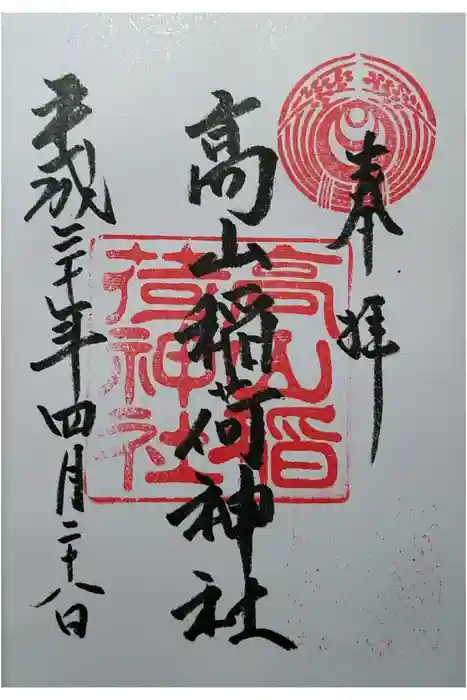 奉拝
高山稲荷神社
高山稻
荷神社
平成三十年四月二十八日